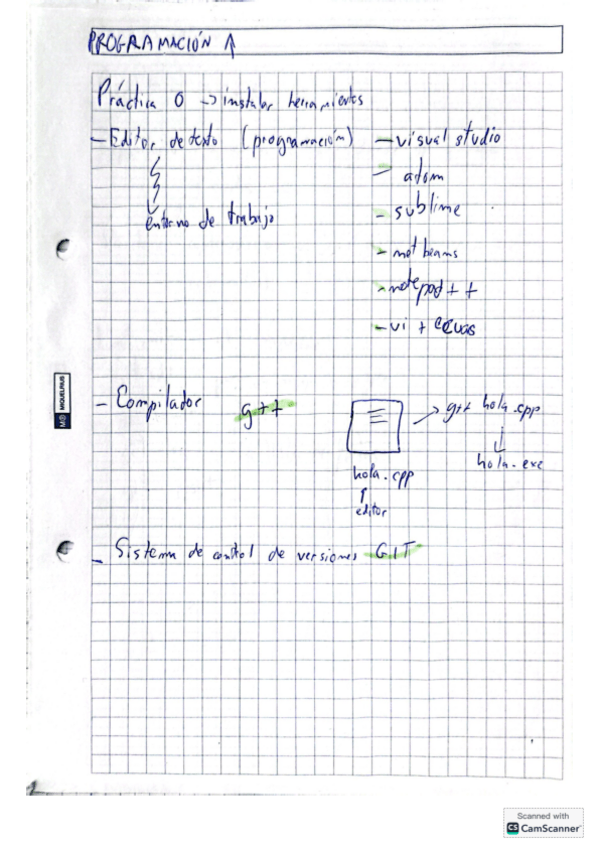 PROGRAMACIÓN 1
Práctica 0 -> instalar herramientas
- Editor de texto (programación)
entorno de trabajo
- visual studio
- atom
- sublime
- net beams
- notepad ++
- vi +
- Compilador g++
hola.cpp
editor
g++ hola.cpp
hola.exe
- Sistema de control de versiones GIT
MIQUELRIUS
Scanned with
CS CamScanner